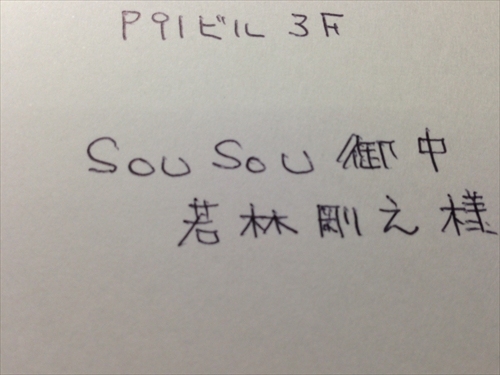 P91ビル 3F
SOU SOU 御中
若林剛之様